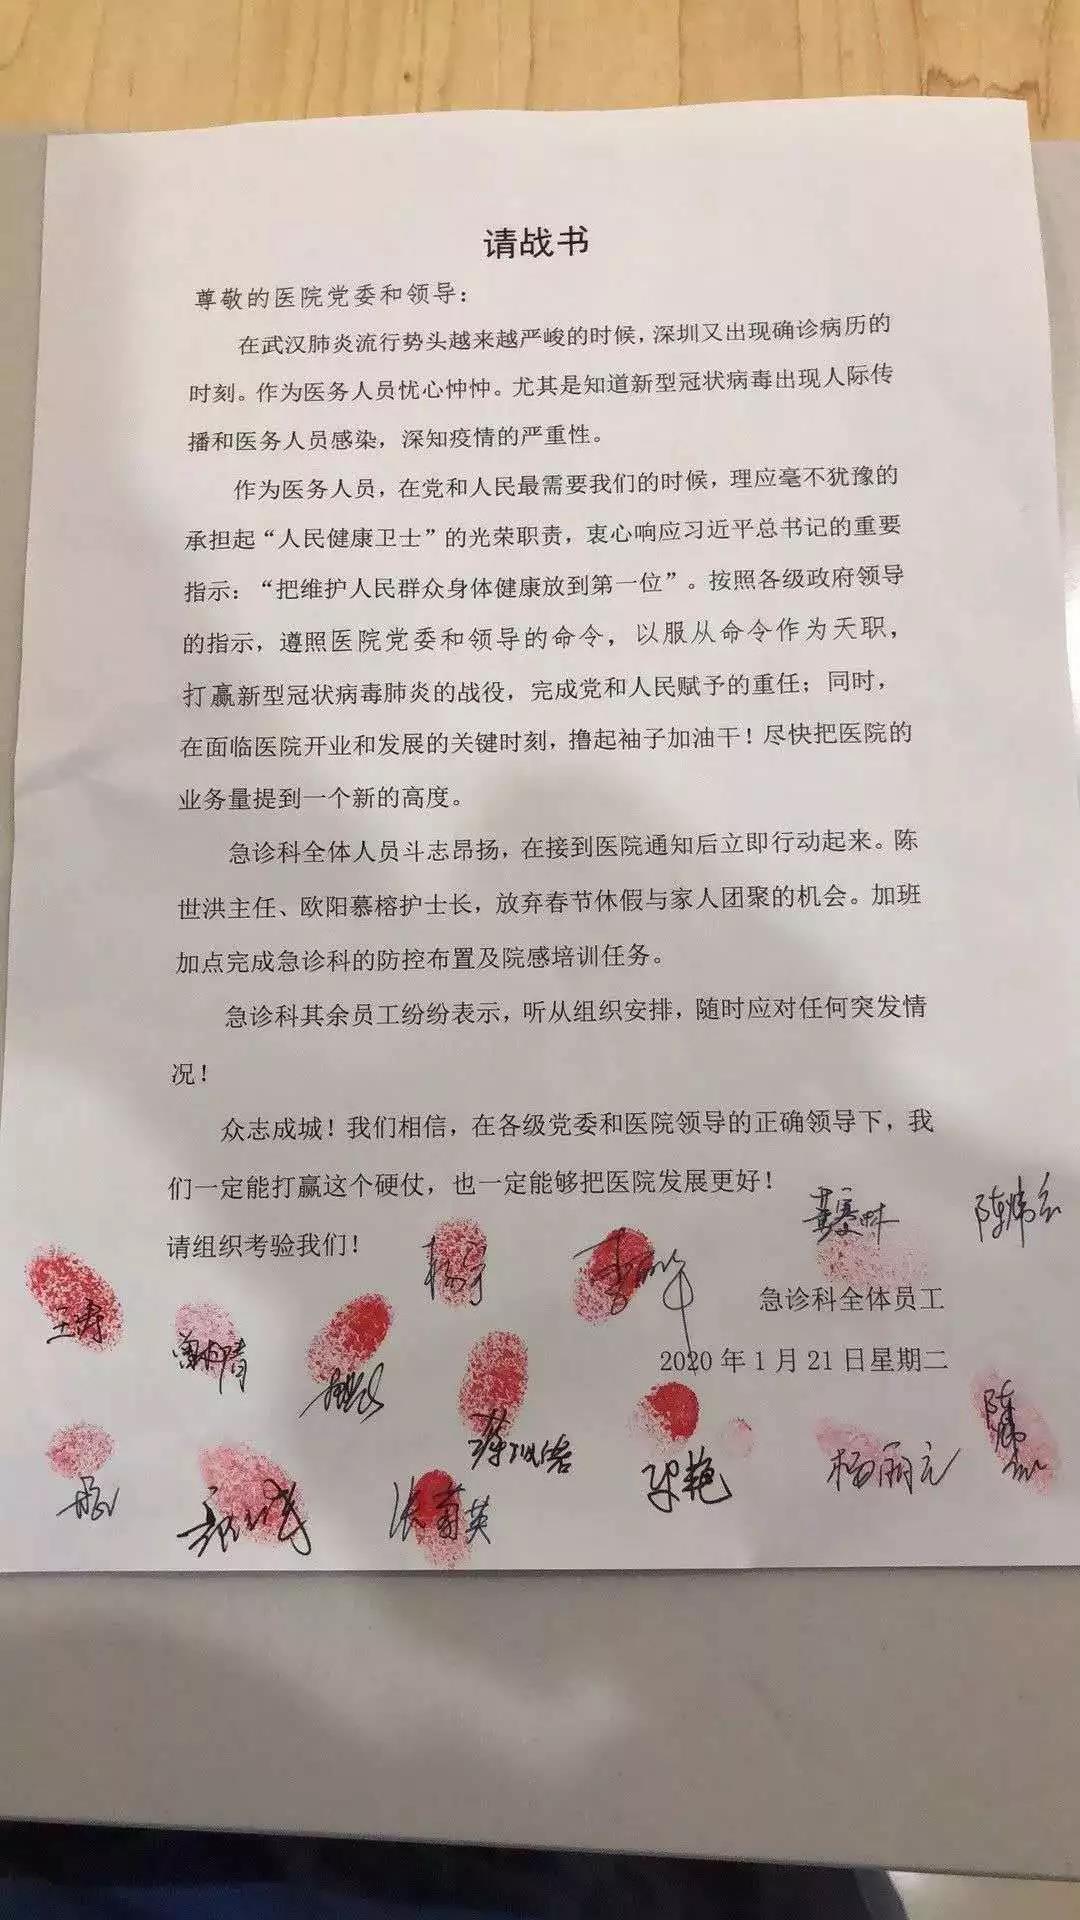 请战书
尊敬的医院党委和领导：
在武汉肺炎流行势头越来越严峻的时候，深圳又出现确诊病历的
时刻。作为医务人员忧心忡忡。尤其是知道新型冠状病毒出现人际传
播和医务人员感染，深知疫情的严重性。
作为医务人员，在党和人民最需要我们的时候，理应毫不犹豫的
承担起“人民健康卫士”的光荣职责，衷心响应习近平总书记的重要
指示：“把维护人民群众身体健康放到第一位”。按照各级政府领导
的指示，遵照医院党委和领导的命令，以服从命令作为天职，
打赢新型冠状病毒肺炎的战役，完成党和人民赋予的重任；同时，
在面临医院开业和发展的关键时刻，撸起袖子加油干！尽快把医院的
业务量提到一个新的高度。
急诊科全体人员斗志昂扬，在接到医院通知后立即行动起来。陈
世洪主任、欧阳慕榕护士长，放弃春节休假与家人团聚的机会。加班
加点完成急诊科的防控布置及院感培训任务。
急诊科其余员工纷纷表示，听从组织安排，随时应对任何突发情
况！
众志成城！我们相信，在各级党委和医院领导的正确领导下，我
们一定能打赢这个硬仗，也一定能够把医院发展更好！
请组织考验我们！
急诊科全体员工
2020年1月21日星期二
王涛
张菊英
杨丽元